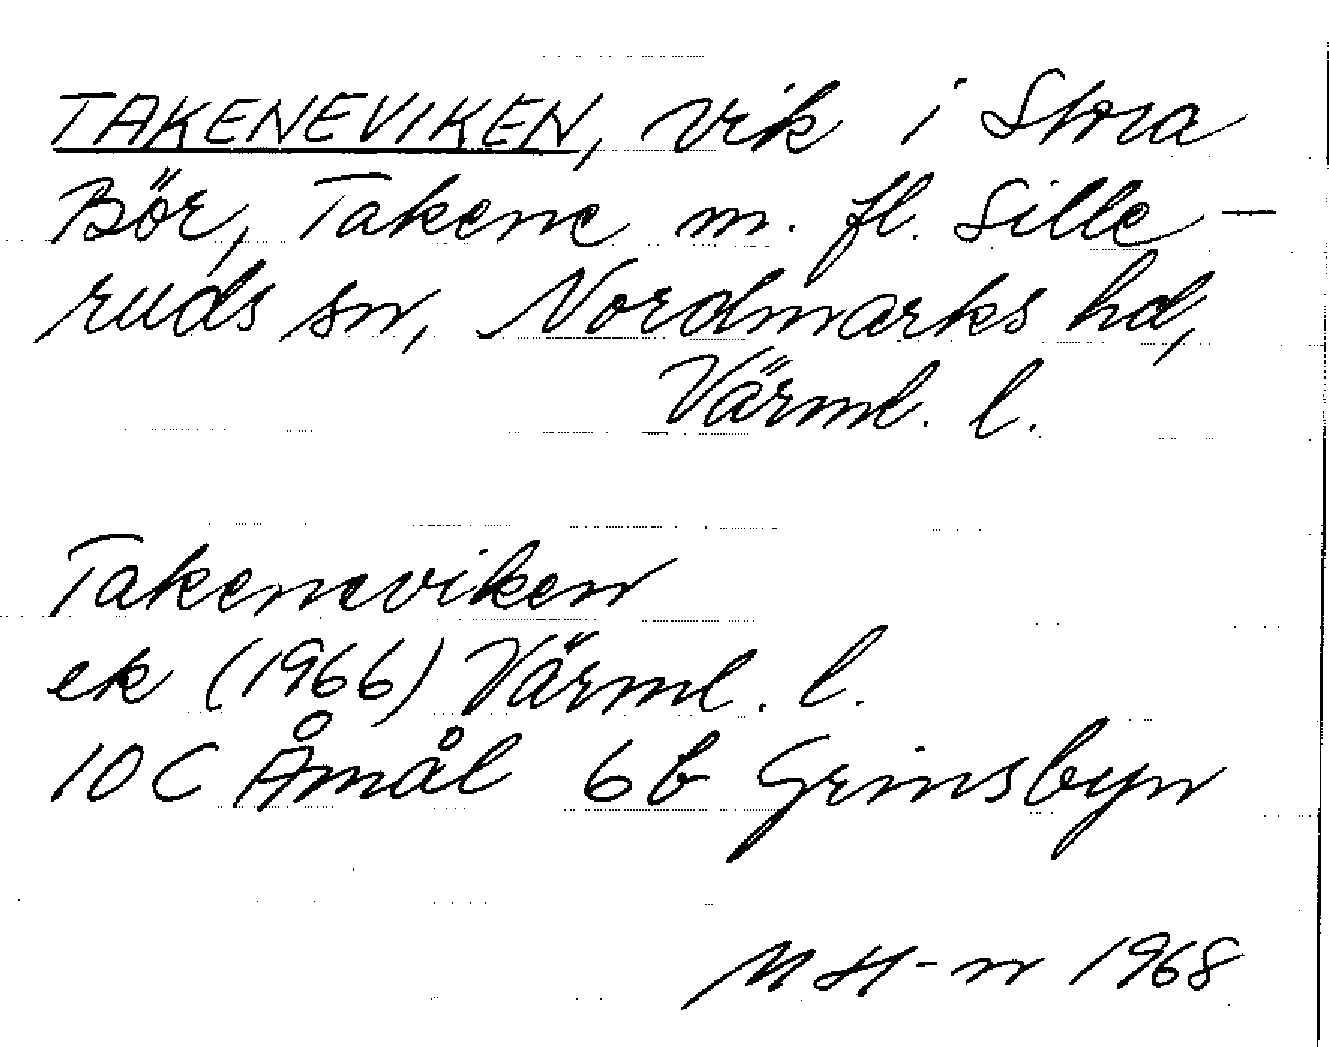 TAKENEVIKEN, vik i Stora
Bör, Takene m. fl. Sille-
ruds sn, Nordmarks hd,
Värml. l.
Takeneviken
ek (1966) Värml. l.
10 C Åmål 6 b Grinsbyn
M H-n 1968